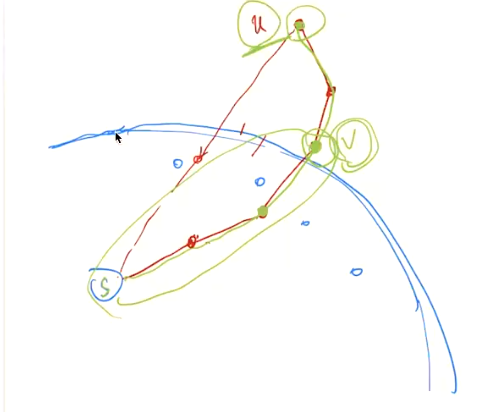 u
V
S